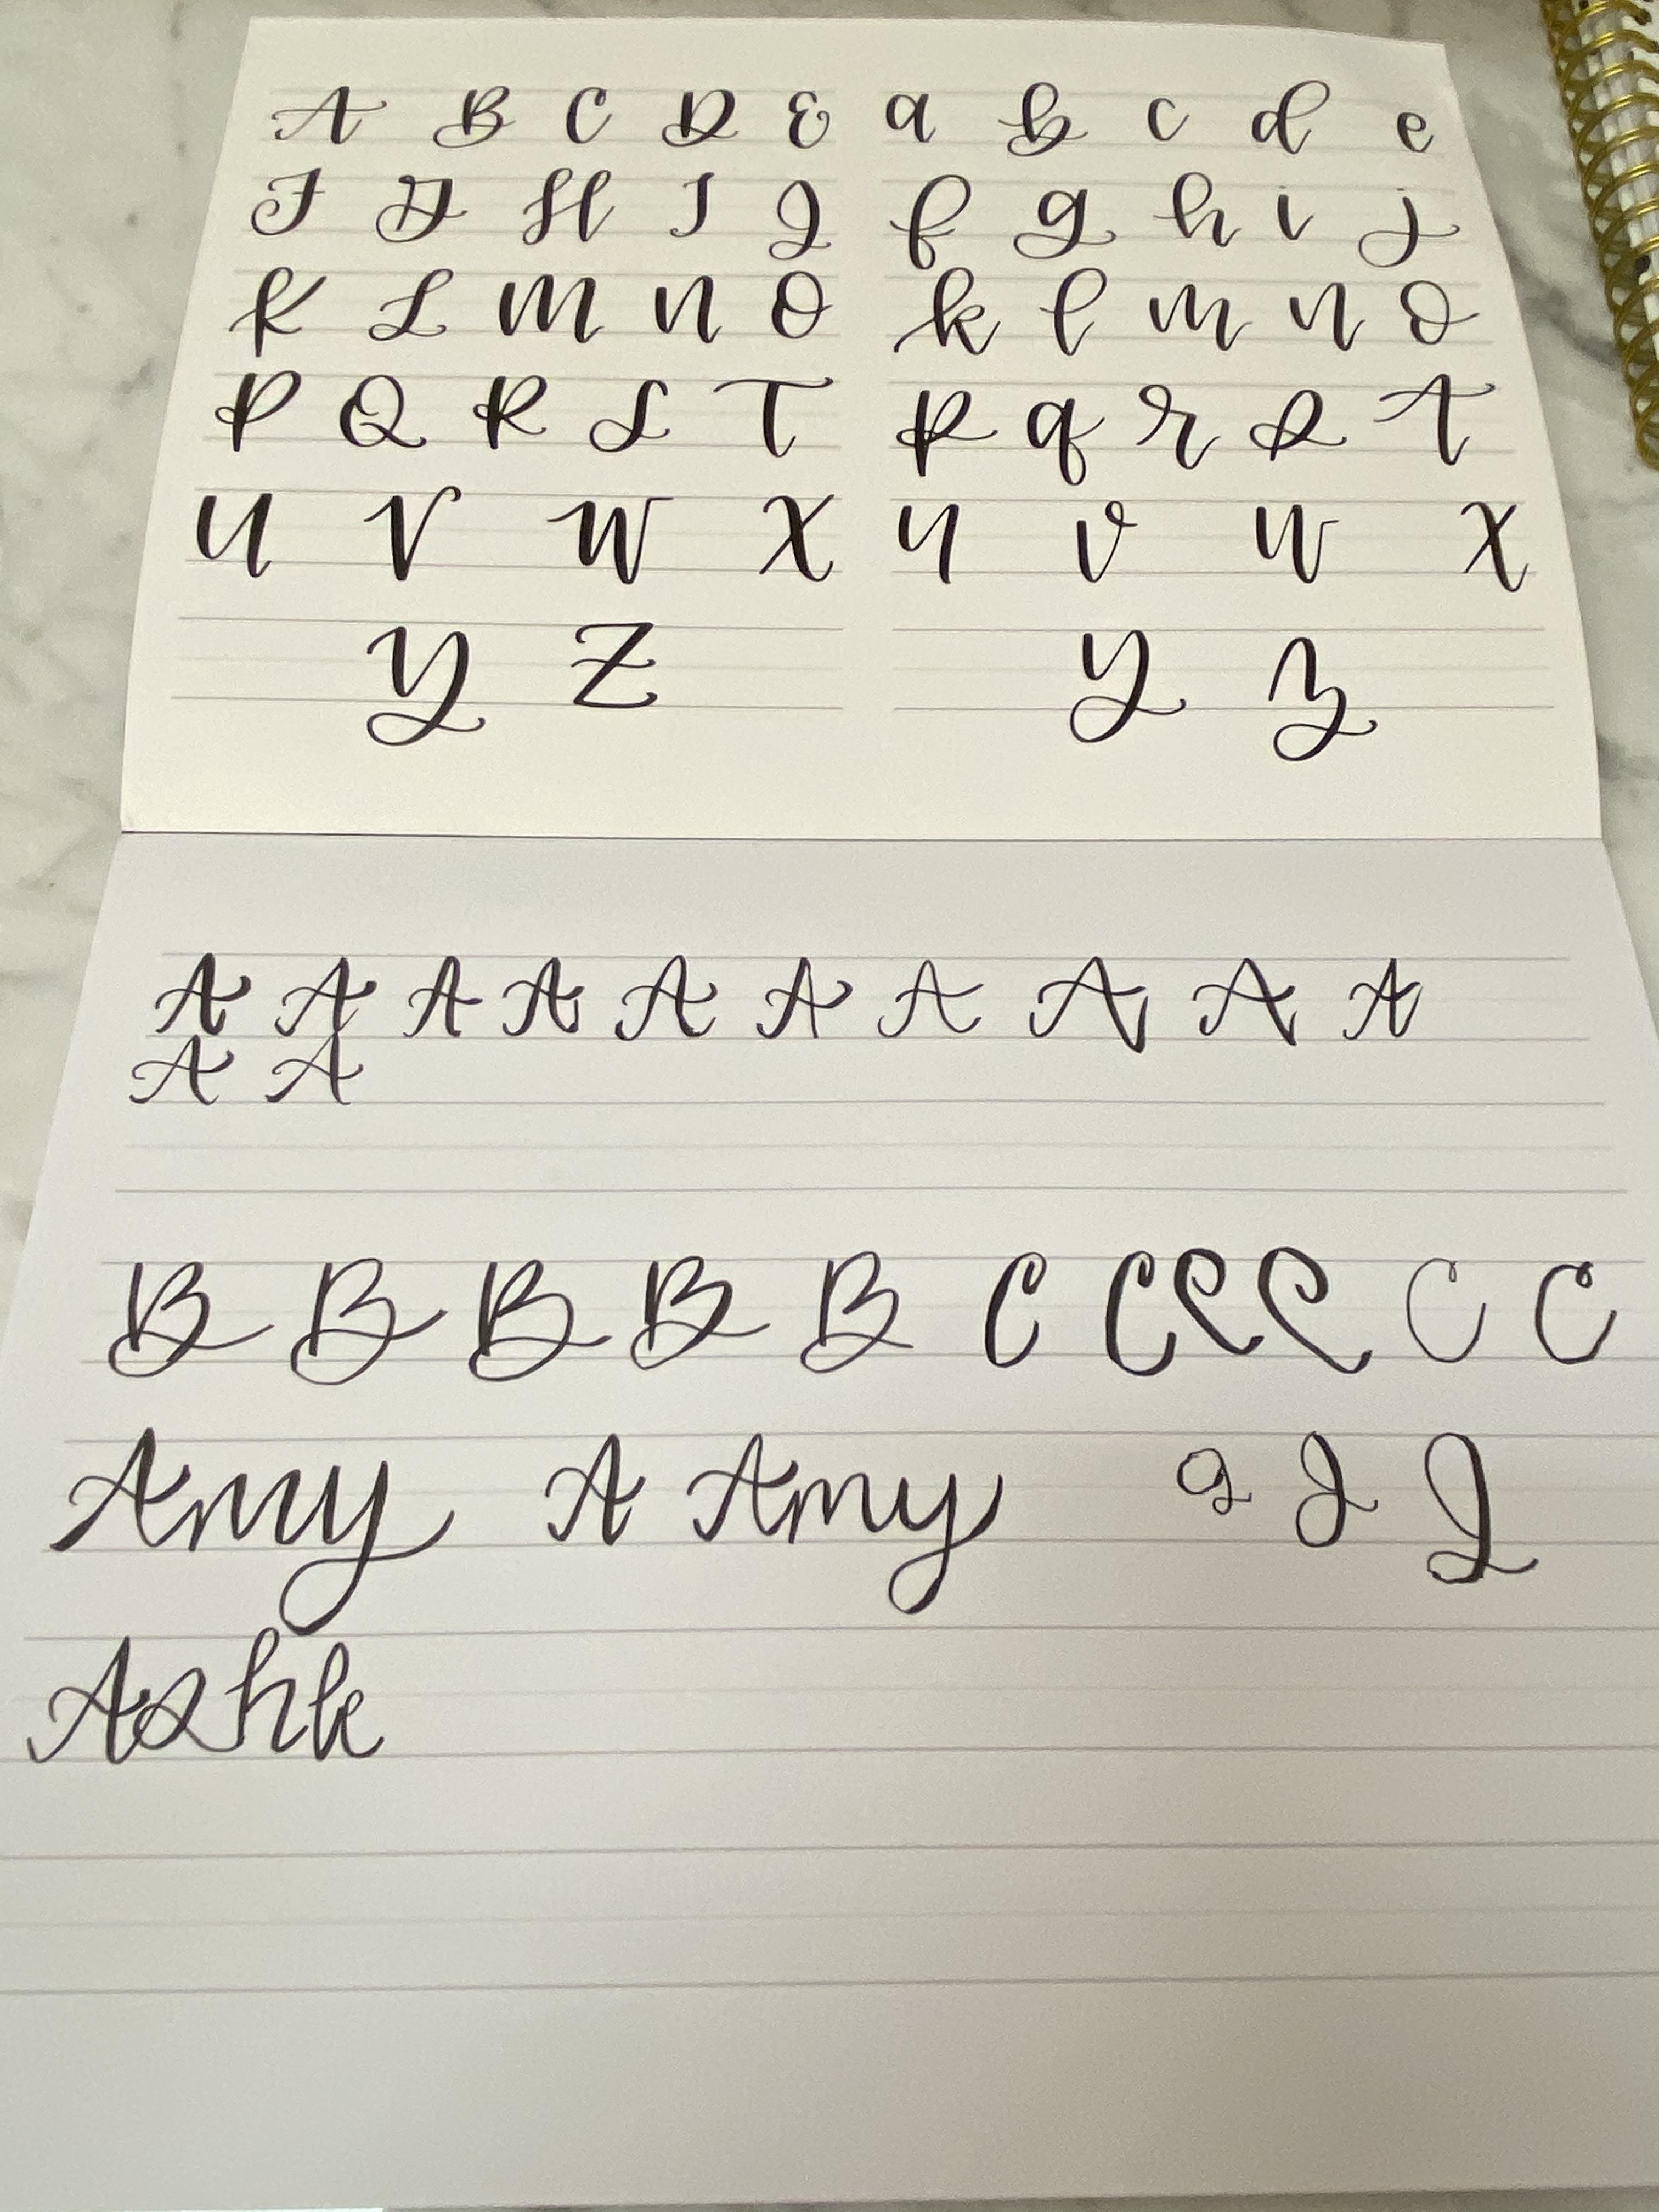 A B C D E a b c d e
F G H I J f g h i j
K L M N O k l m n o
P Q R S T p q r s t
U V W X u v w x
Y Z y z
A A A A A A A A A A
A A
B B B B B C C C C C C
Amy A Amy J J J
Ashk